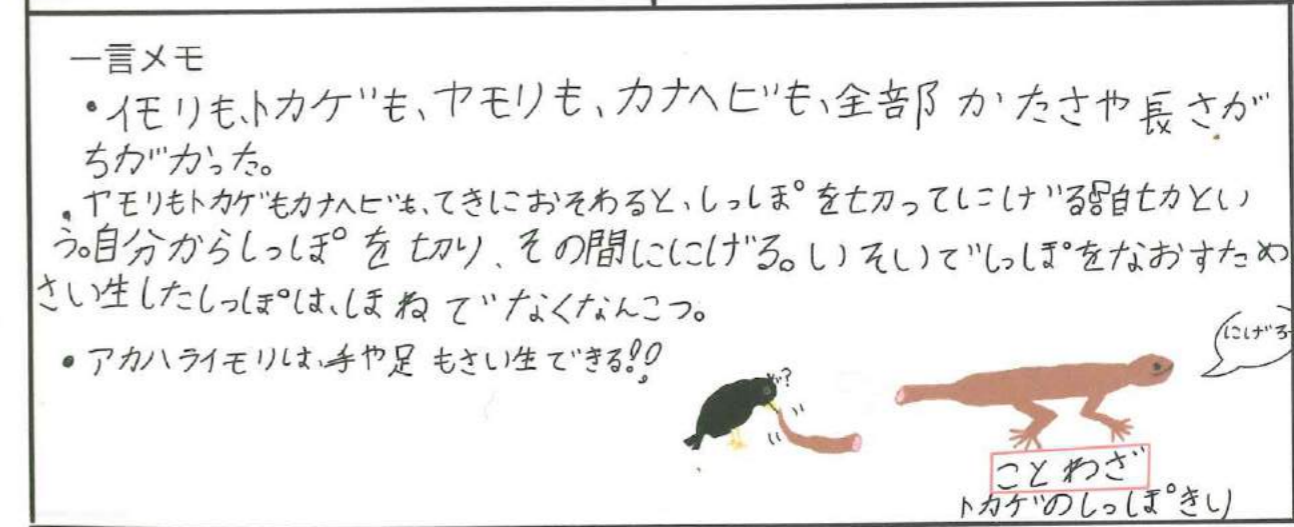 一言メモ
・イモリも、トカゲも、ヤモリも、カナヘビも、全部かたさや長さが
ちがかった。
・ヤモリもトカゲもカナヘビも、てきにおそわると、しっぽを切ってにげる自切とい
う。自分からしっぽを切り、その間ににげる。いそいでしっぽをなおすため
さい生したしっぽは、ほねでなくなんこつ。
・アカハライモリは、手や足もさい生できる!!
?
にげろ
ことわざ
トカゲのしっぽきり